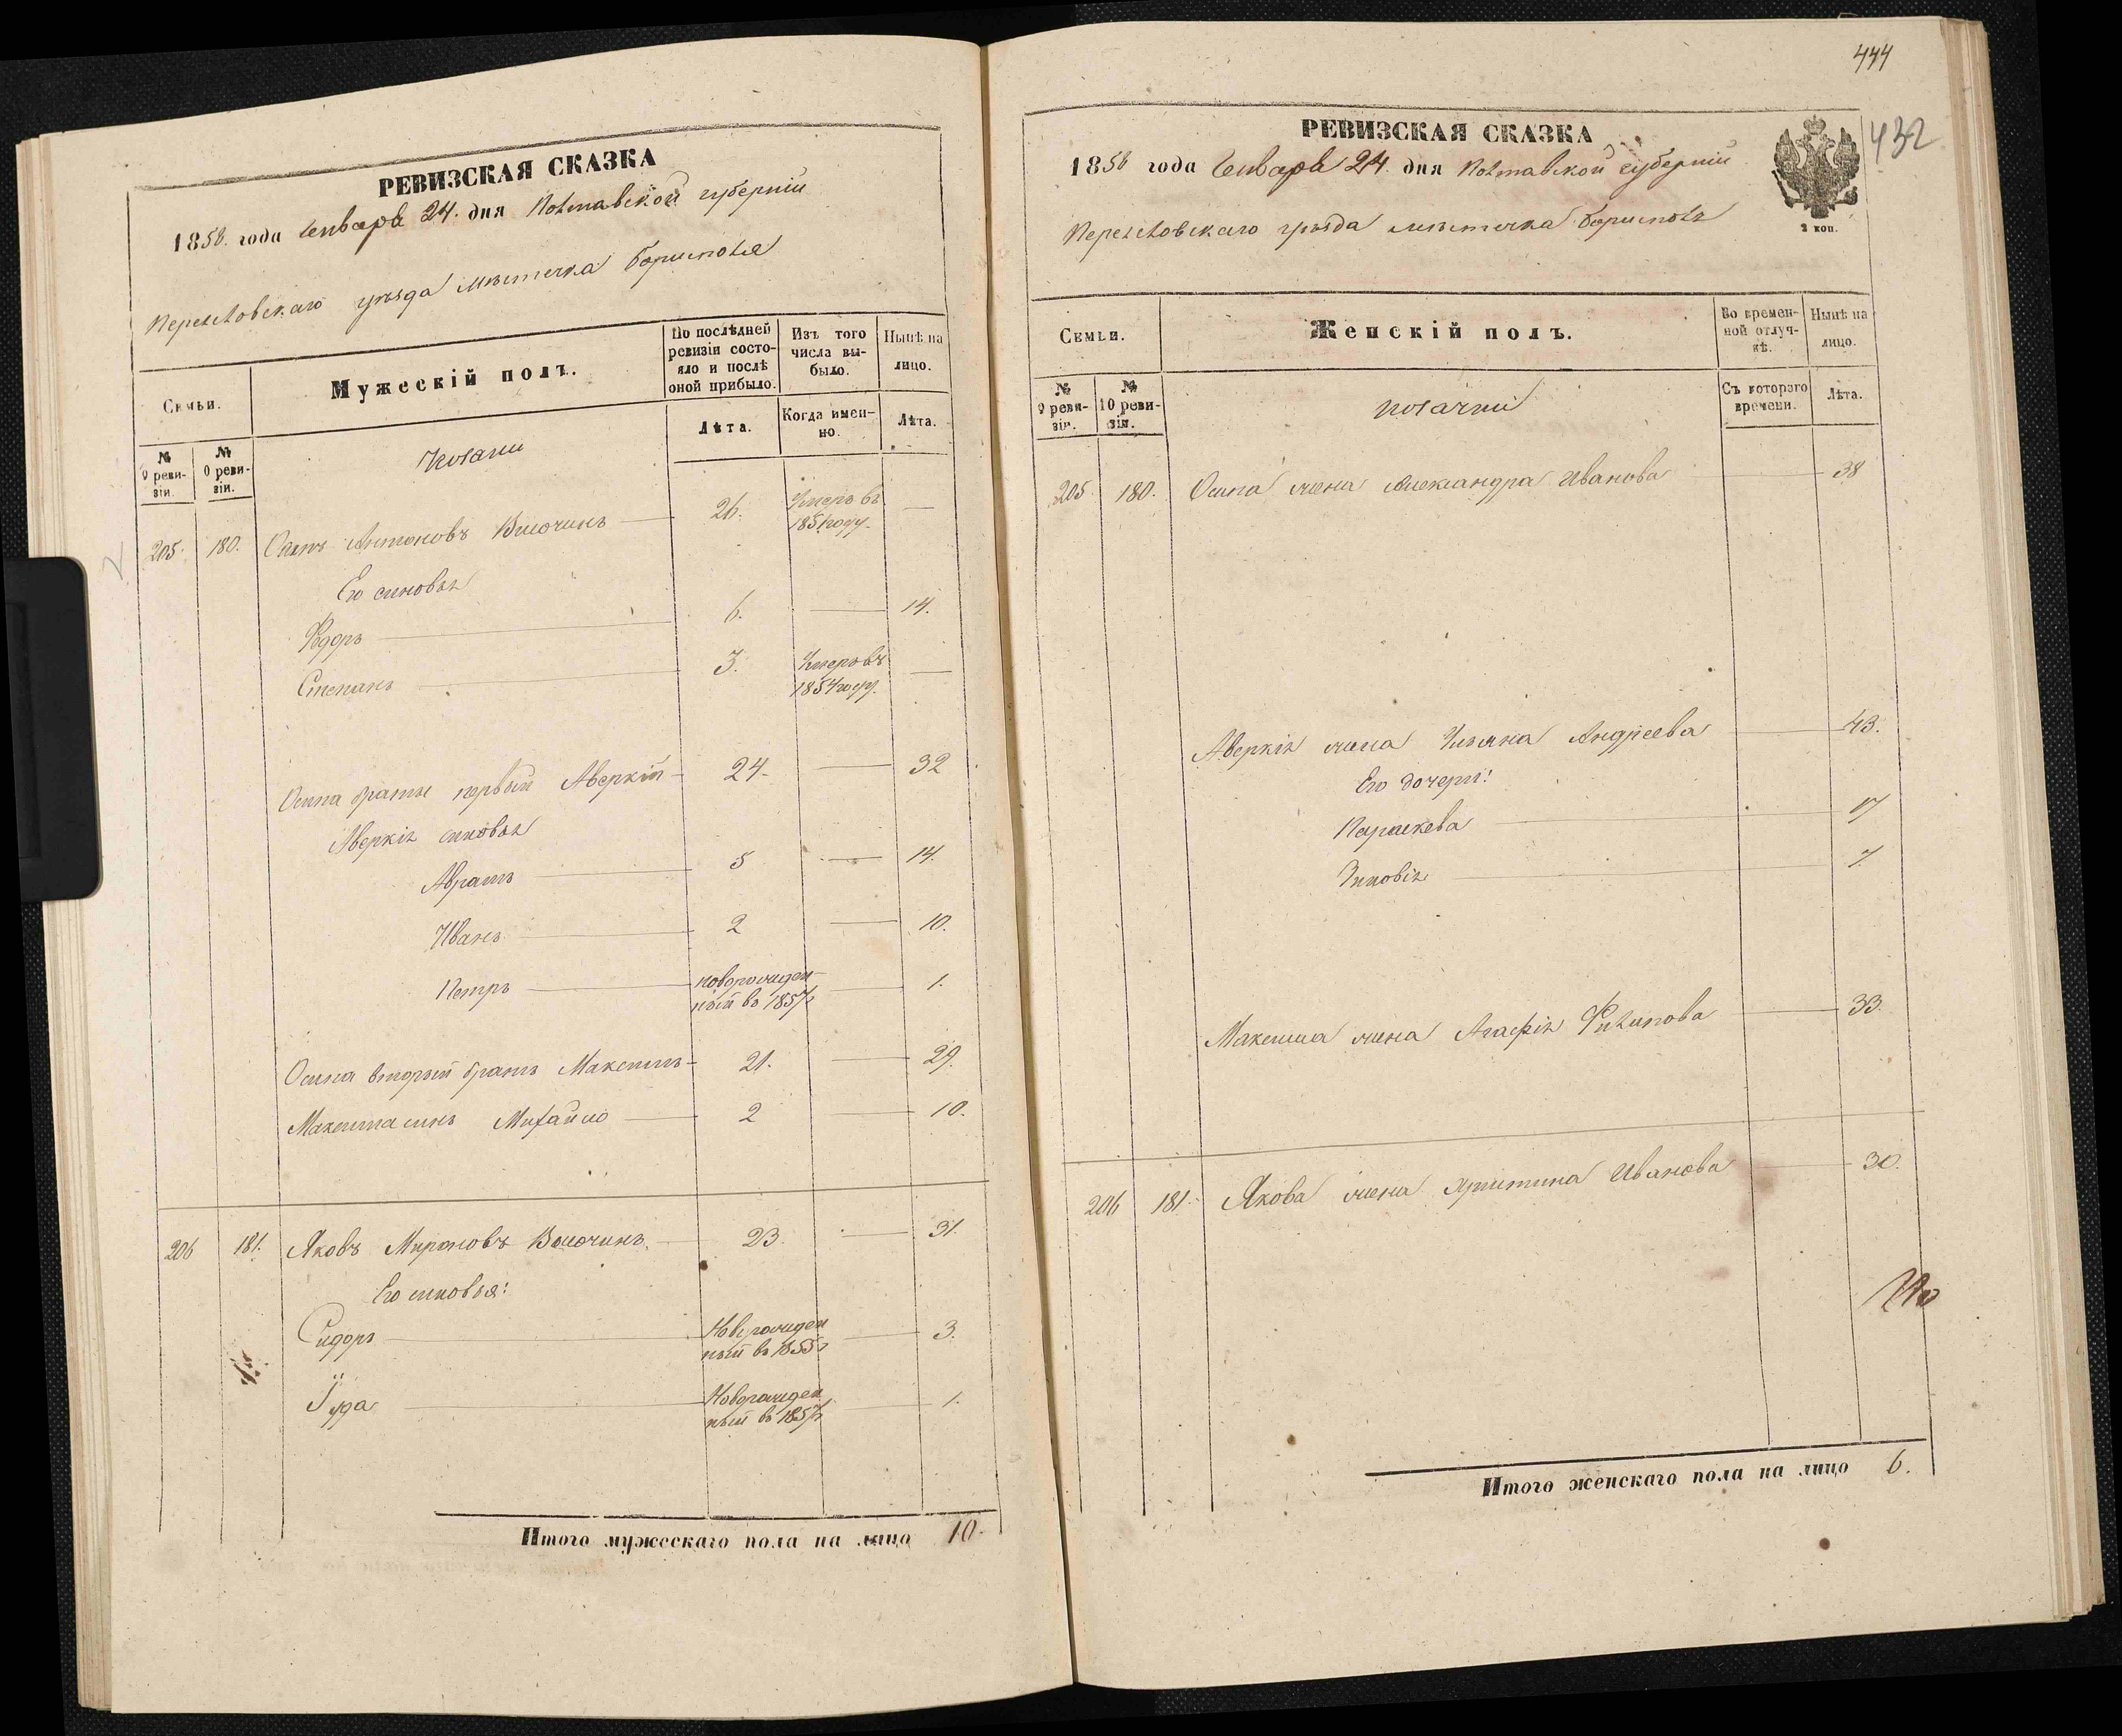 РЕВИЗСКАЯ СКАЗКА
1858. года Генваря 24. дня Полтавской губерніи
Переяловскаго уѣзда мѣстечка Борисполя
Семьи.
Мужескій полъ.
По послѣдней ревизіи состояло и послѣ оной прибыло.
Изъ того числа выбыло.
Нынѣ на лицо.
№ 9 ревизіи.
№ 0 ревизіи.
Козаки
Лѣта.
Когда именно.
Лѣта.
205. 180. Осипъ Антоновъ 26. Умеръ въ 1851 году. —
Его сыновья
Федоръ 6. — 14.
Степанъ 3. Умеръ въ 1854 году. —
Осипа братья первый Аверкій 24. — 32
Аверкія сыновья
Абрамъ 5 — 14.
Иванъ 2 — 10.
Петръ новорожденный въ 1857 г — 1.
Осипа вторый братъ Максимъ 21. — 29.
Максима сынъ Михайло 2 — 10.
206 181. Яковъ Мироновъ 23 — 31.
Его сыновья:
Сидоръ Новорожденный въ 1855 г — 3.
Іуда Новорожденный въ 1857 г — 1.
Итого мужескаго пола на лицо 10.
444
432
РЕВИЗСКАЯ СКАЗКА
1858 года Генваря 24. дня Полтавской губерніи
Переяловскаго уѣзда мѣстечка Борисполя
2 коп.
Семьи.
Женскій полъ.
Во временной отлучкѣ.
Нынѣ на лицо.
№ 9 ревизіи.
№ 10 ревизіи.
Козачки
Съ котораго времени.
Лѣта.
205. 180. Осипа жена Александра Иванова — 38
Аверкія жена Ульяна Андреева — 43.
Его дочери:
Параскева — 17
Зиновія — 7.
Максима жена Агафія Филипова — 33.
206 181. Якова жена Христина Иванова — 30.
Итого женскаго пола на лицо 6.